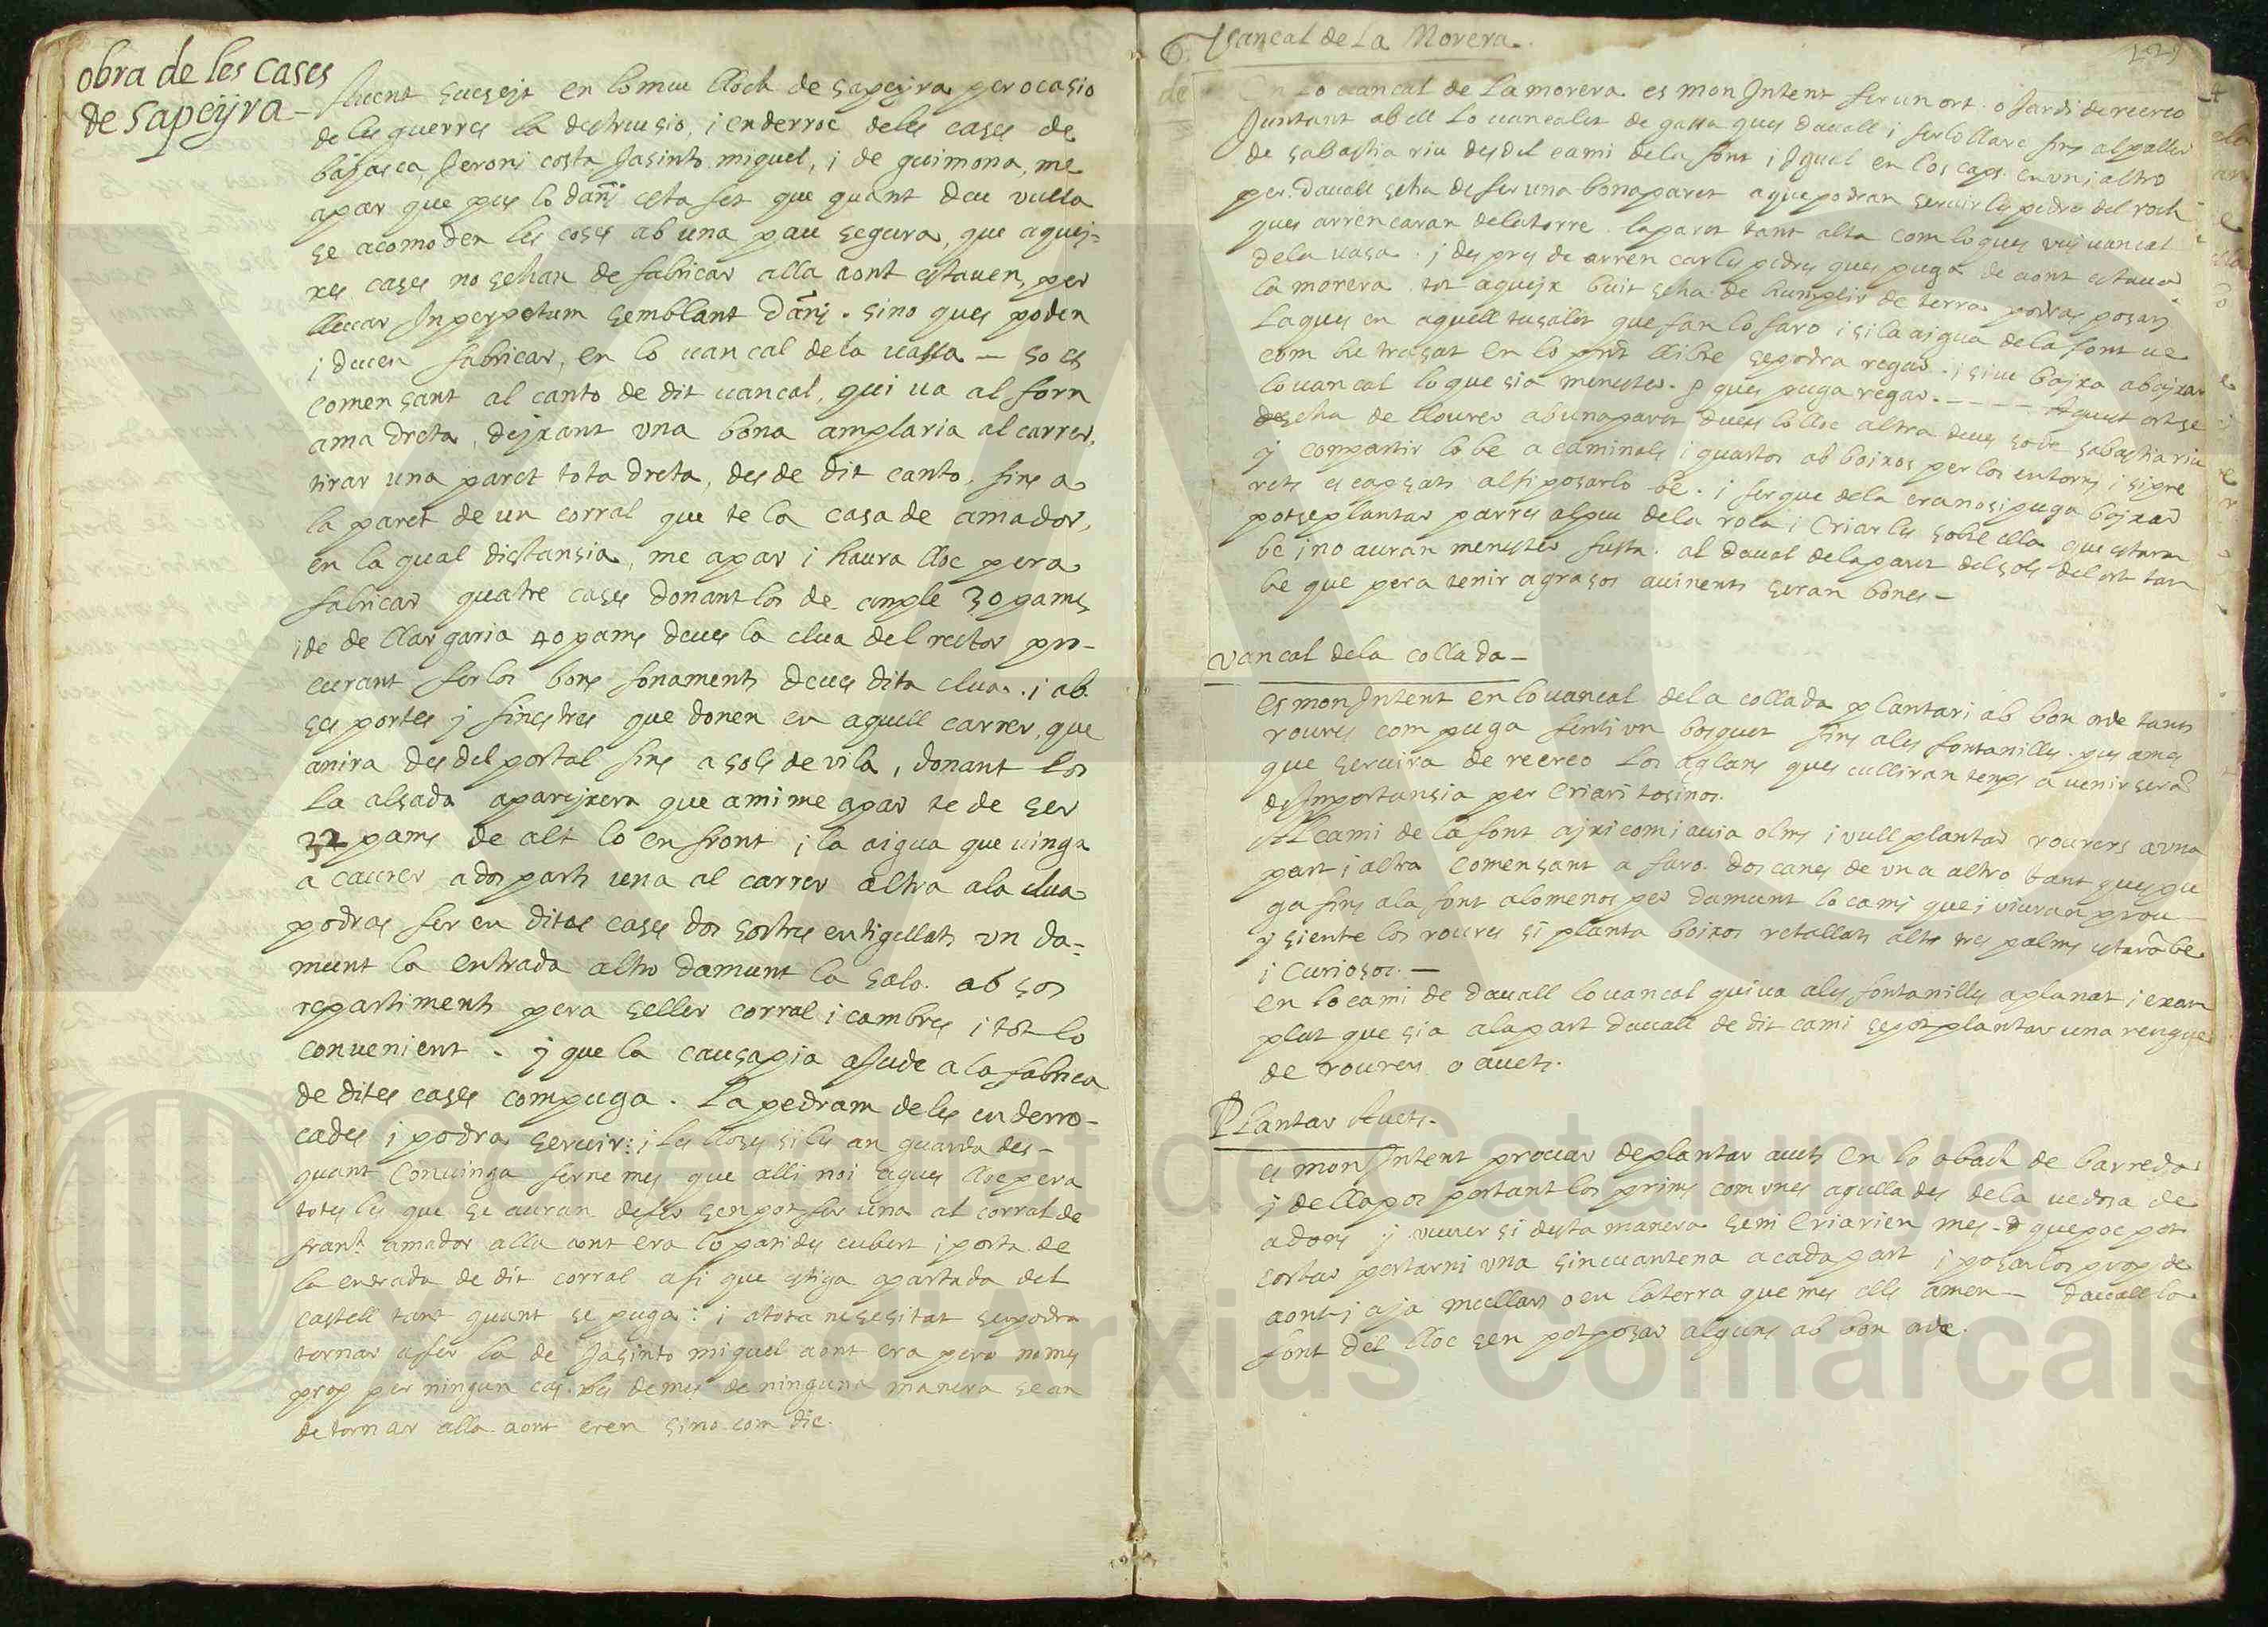 obra de les cases
de Sapeÿra –
Avent susejt en lo meu lloch de Sapeyra per ocasio
de les guerres la destrucsio, i enderroc deles cases de
Jeroni costa Jasinto miquel, i de guimona, me
apar que pus lo dañj esta fet que quant deu vulla
se acomoden les coses ab una pau segura, que aquej-
xes cases no sehan de fabricar alla aont estaven, per
llevar Inperpetum semblant dañj. sino ques poden
i deuen fabricar, en lo vancal dela vassa – so es
comensant al canto de dit vancal, qui va al forn
ama dreta, dejxant una bona amplaria al carrer,
tirar una paret tota dreta, des de dit canto, fins a
la paret de un corral que te la casa de amador,
en la qual distansia, me apar i haura lloc pera
fabricar quatre cases donantlos de ample 30 pams
i de de llargaria 40 pams deues la clua del rector pro-
curant ferlos bons fonaments deues dita clua. i ab
ses portes j finestres que donen en aquell carrer, que
anira des del portal fins a sols de vila, donant los
la alsada aparejxera que amime apar te de ser
32 pams de alt lo enfront i la aigua que vinga
a caurer ados parts una al carrer altra ala clua
podras fer en dites cases dos sostres entigellats un da-
munt la entrada altro damunt la sala. ab sos
repartiments pera seller corral i cambres i tot lo
convenient. j que la causapia ajude ala fabrica
de dites cases compuga. La pedram deles enderro-
cades i podra servir: i les lloses siles an guardades –
quant convinga ferne mes que alli noi agues lloc pera
totes les que se auran defer senpot fer una al corral de
franch amador alla aont era lo pati des cubert i porta de
la entrada de dit corral asi que estiga apartada del
castell tant quant se puga: i atota nesesitat se podra
tornar afer la de Jasinto miquel aont era pero nomes
prop per ningun cas. les demes de ninguna manera sean
de tornar alla aont eren sino com dic.
Vancal de La Morera.
En Lo vancal de La morera es mon Intent fer un ort o Jardi de recreo
Juntant ab ell Lo vancalet de gassa ques davall i ferlo llarc fins al paller
de sabastia riu des del cami dela font i Igual en los caps en un i altro
per davall seha de fer una bona paret aque podran servir les pedres del roch
ques arrencaran dela torre. la paret tant alta com lo ques vuj vancal
dela vasa. i despres de arrencar les pedres ques puga de aont estava
la morera tot aquejx buit seha de humplir de terra podras posar
Laques en aquell tusalet que fan lo faro i si la aigua dela font ve
com he trasat en lo pnt llibre sepodra regar. i sino bajxa abajxar
lo vancal lo que sia menester. p ques puga regar. – – – – Aquest ort se
seha de llourer ab una paret deues lo lloc altra deues so de sabastia riu
y compartir lo be a caminals i quartos ab boixos per los entorns i sipre
rets escapsats alsi posarlo be. i fer que dela era nosi puga bajxar
potse plantar parres alpeu dela roca i Criarles sobre ella que estaran
be i no auran menester fusta. al davall dela paret del sols del ort tan
be que pera tenir agrasos avinents seran bones –
Vancal dela collada –
Es mon Intent en lo vancal dela collada plantari ab bon orde tants
roures com puga ferhi un bosquet fins ales fontanilles. pus ames
que servira de recreo Los aglans ques culliran temps avenir sera
deInportansia per Criari tosinos.
Al cami de la font ajxi com i avia olms i vull plantar rourers a una
part i altra comensant a faro. dos canes de un a altro tant ques pu
ga fins ala font alomenos per damunt lo cami que i viuran prou –
y siente los roures si planta boixos retallats alts tres palms estara be
i Curiosos. –
en lo cami de davall lo vancal qui va ales fontanilles aplanat i exam
plat que sia alapart davall de dit cami sepot plantar una renguera
de roures o avets.
PLantar Avets.
es mon Intent provar deplantar avets en lo obach de barreda
y dellapos portantlos prims com unes agullades dela vedosa de
adons y veurer si desta manera seni Criarien mes. p que poc pot
costar portarni una sincuantena acada part i posarlos prop de
aont i aja mullars o en laterra que mes ells amen – davall la
font del lloc sen pot posar alguns ab bon orde.